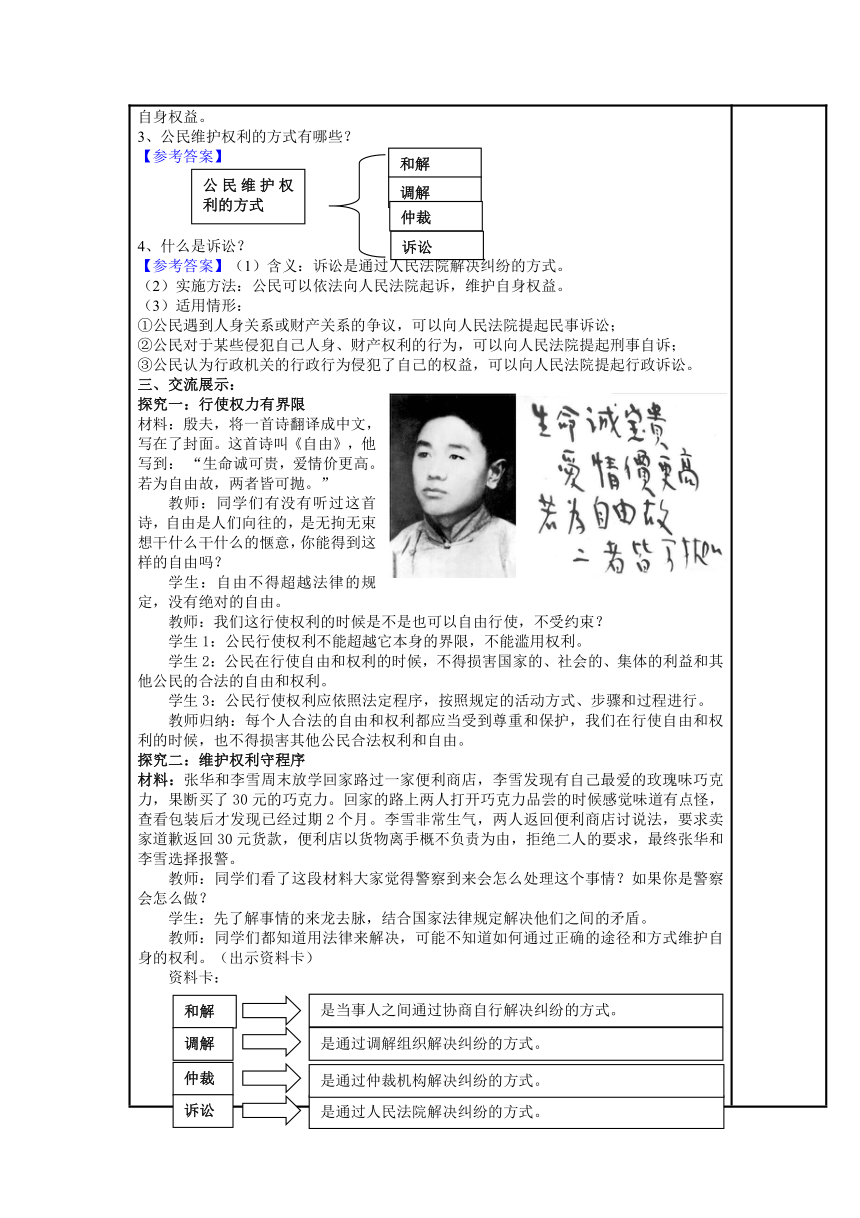 自身权益。
3、公民维护权利的方式有哪些？
【参考答案】
公民维护权
利的方式
和解
调解
仲裁
诉讼
4、什么是诉讼？
【参考答案】（1）含义：诉讼是通过人民法院解决纠纷的方式。
（2）实施方法：公民可以依法向人民法院起诉，维护自身权益。
（3）适用情形：
①公民遇到人身关系或财产关系的争议，可以向人民法院提起民事诉讼；
②公民对于某些侵犯自己人身、财产权利的行为，可以向人民法院提起刑事自诉；
③公民认为行政机关的行政行为侵犯了自己的权益，可以向人民法院提起行政诉讼。
三、交流展示：
探究一：行使权力有界限
材料：殷夫，将一首诗翻译成中文，
写在了封面。这首诗叫《自由》，他
写到：“生命诚可贵，爱情价更高。
若为自由故，两者皆可抛。”
教师：同学们有没有听过这首
诗，自由是人们向往的，是无拘无束
想干什么干什么的惬意，你能得到这
样的自由吗？
学生：自由不得超越法律的规
定，没有绝对的自由。
生命诚宝贵
爱情價更高
若为自由故
二者皆可抛
教师：我们这行使权利的时候是不是也可以自由行使，不受约束？
学生1：公民行使权利不能超越它本身的界限，不能滥用权利。
学生2：公民在行使自由和权利的时候，不得损害国家的、社会的、集体的利益和其
他公民的合法的自由和权利。
学生3：公民行使权利应依照法定程序，按照规定的活动方式、步骤和过程进行。
教师归纳：每个人合法的自由和权利都应当受到尊重和保护，我们在行使自由和权
利的时候，也不得损害其他公民合法权利和自由。
探究二：维护权利守程序
材料：张华和李雪周末放学回家路过一家便利商店，李雪发现有自己最爱的玫瑰味巧克
力，果断买了30元的巧克力。回家的路上两人打开巧克力品尝的时候感觉味道有点怪，
查看包装后才发现已经过期2个月。李雪非常生气，两人返回便利商店讨说法，要求卖
家道歉返回30元货款，便利店以货物离手概不负责为由，拒绝二人的要求，最终张华和
李雪选择报警。
教师：同学们看了这段材料大家觉得警察到来会怎么处理这个事情？如果你是警察
会怎么做？
学生：先了解事情的来龙去脉，结合国家法律规定解决他们之间的矛盾。
教师：同学们都知道用法律来解决，可能不知道如何通过正确的途径和方式维护自
身的权利。（出示资料卡）
资料卡：
和解 是当事人之间通过协商自行解决纠纷的方式。
调解 是通过调解组织解决纠纷的方式。
仲裁 是通过仲裁机构解决纠纷的方式。
诉讼 是通过人民法院解决纠纷的方式。